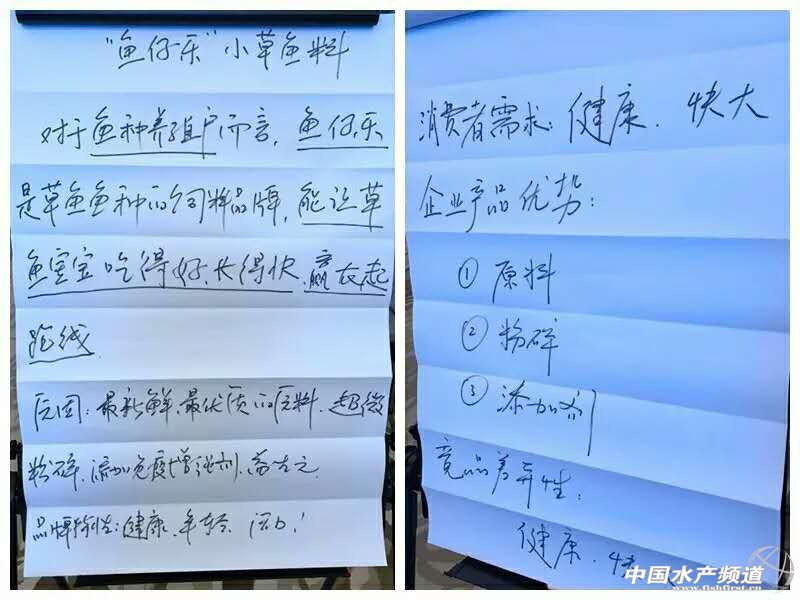 “鱼仔乐”小草鱼料
对于鱼种养殖户而言，鱼仔乐
是草鱼鱼种的饲料品牌，能让草
鱼宝宝吃得好、长得快、赢在起
跑线
原因：最新鲜、最优质的原料、超微
粉碎、添加免疫增强剂、
品牌特性：健康、年轻、活力！
消费者需求：健康、快大
企业产品优势：
① 原料
② 粉碎
③ 添加剂
竞品差异性：
健康、快
中国水产频道
www.fishfirst.cn